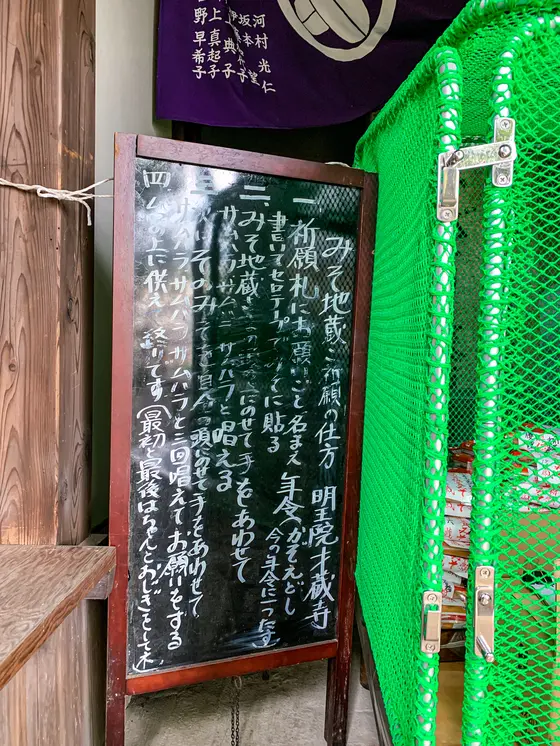 河村 光仁
坂本
伊
井上 真起子
野 早希子
みそ地蔵ご祈願の仕方 明王院才蔵寺
一 祈願札にお願いごと名まえ年令(かぞえどし
今の年令に一つたす)
書いてセロテープでみそに貼る
二、みそ地蔵さまの頭にのせて手をあわせて
サムハラサムハラサムハラと唱える
三、そのみそを自分の頭にのせて手をあわせて
サムハラサムハラサムハラと三回唱えてお願いをする
四、の上に供えて終りです。(最初と最後はちゃんとおじぎをして下さい)